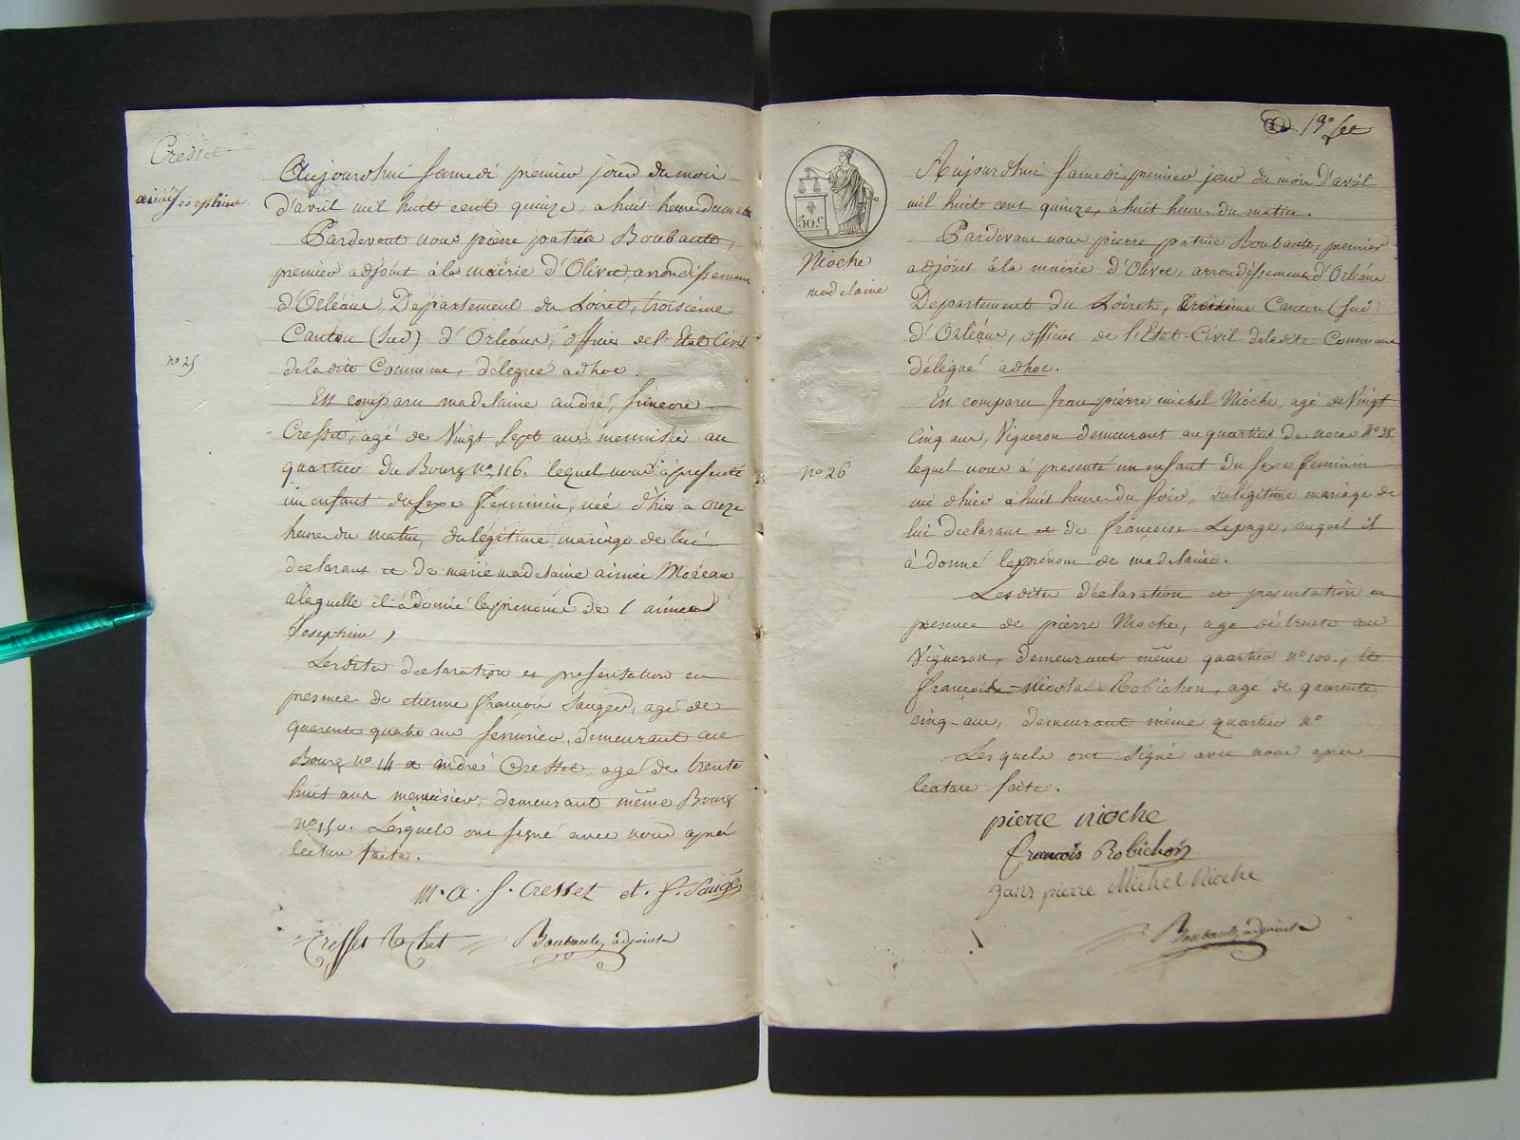 Cresset
aimée josephine
no 25
Aujourdhui samedi premier jour du mois
d'avril mil huit cent quinze, a huit heures du matin
Pardevant nous pierre patrice Boubault,
premier adjoint à la mairie d'Olivet, arrondissement
d'Orléans, Departement du Loiret, troisieme
Canton (sud) d'Orléans, officier de l'Etat Civil
de la dite Commune, délégué adhoc.
En comparu madelaine andré,
Cresset, agé de Vingt Sept ans menuisier au
quartier du Bourg no 116. lequel nous à presenté
un enfant du sexe feminin, née d'hier a onze
heures du matin, du légitime mariage de lui
declarant et de marie madelaine aimée Moreau
alaquelle il à donné les prénoms de aimée
Josephine,
Lesdites declaration et presentation en
presence de etienne francois Sauger, agé de
quarente quatre ans serrurier, demeurant au
Bourg no 14 et andré Cresset, agé de trente
huit ans menuisier, demeurant même Bourg
no 150. Lesquels ont signé avec nous après
lecture faite.
m. a. f. cresset et. f. Sauger
Cresset Boubault, adjoint
19e fet
50.c
Nioche
madelaine
no 26
Aujourdhui samedi premier jour du mois d'avril
mil huit cent quinze, à huit heures du matin.
Pardevant nous pierre patrice Boubault, premier
adjoint à la mairie d'Olivet, arrondissement d'Orléans
Departement du Loiret, troisieme Canton (sud)
d'Orléans, officier de l'Etat-Civil de la dite Commune
délégué adhoc.
En comparu Jean pierre michel Nioche, agé de Vingt
cinq ans, Vigneron demeurant au quartier de no 38
lequel nous à presenté un enfant du sexe feminin
né d'hier a huit heures du soir, du légitime mariage de
lui declarant et de françoise Lepage, auquel il
à donné le prénom de madelaine.
Lesdites déclaration et presentation en
presence de pierre Nioche, agé de trente ans
Vigneron, demeurant même quartier no 100., et
francois-nicolas Robichon, agé de quarente
cinq-ans, demeurant même quartier no
Lesquels ont signé avec nous apres
lecture faite.
pierre nioche
francois Robichon
jans pierre Michel Nioche
Boubault, adjoint